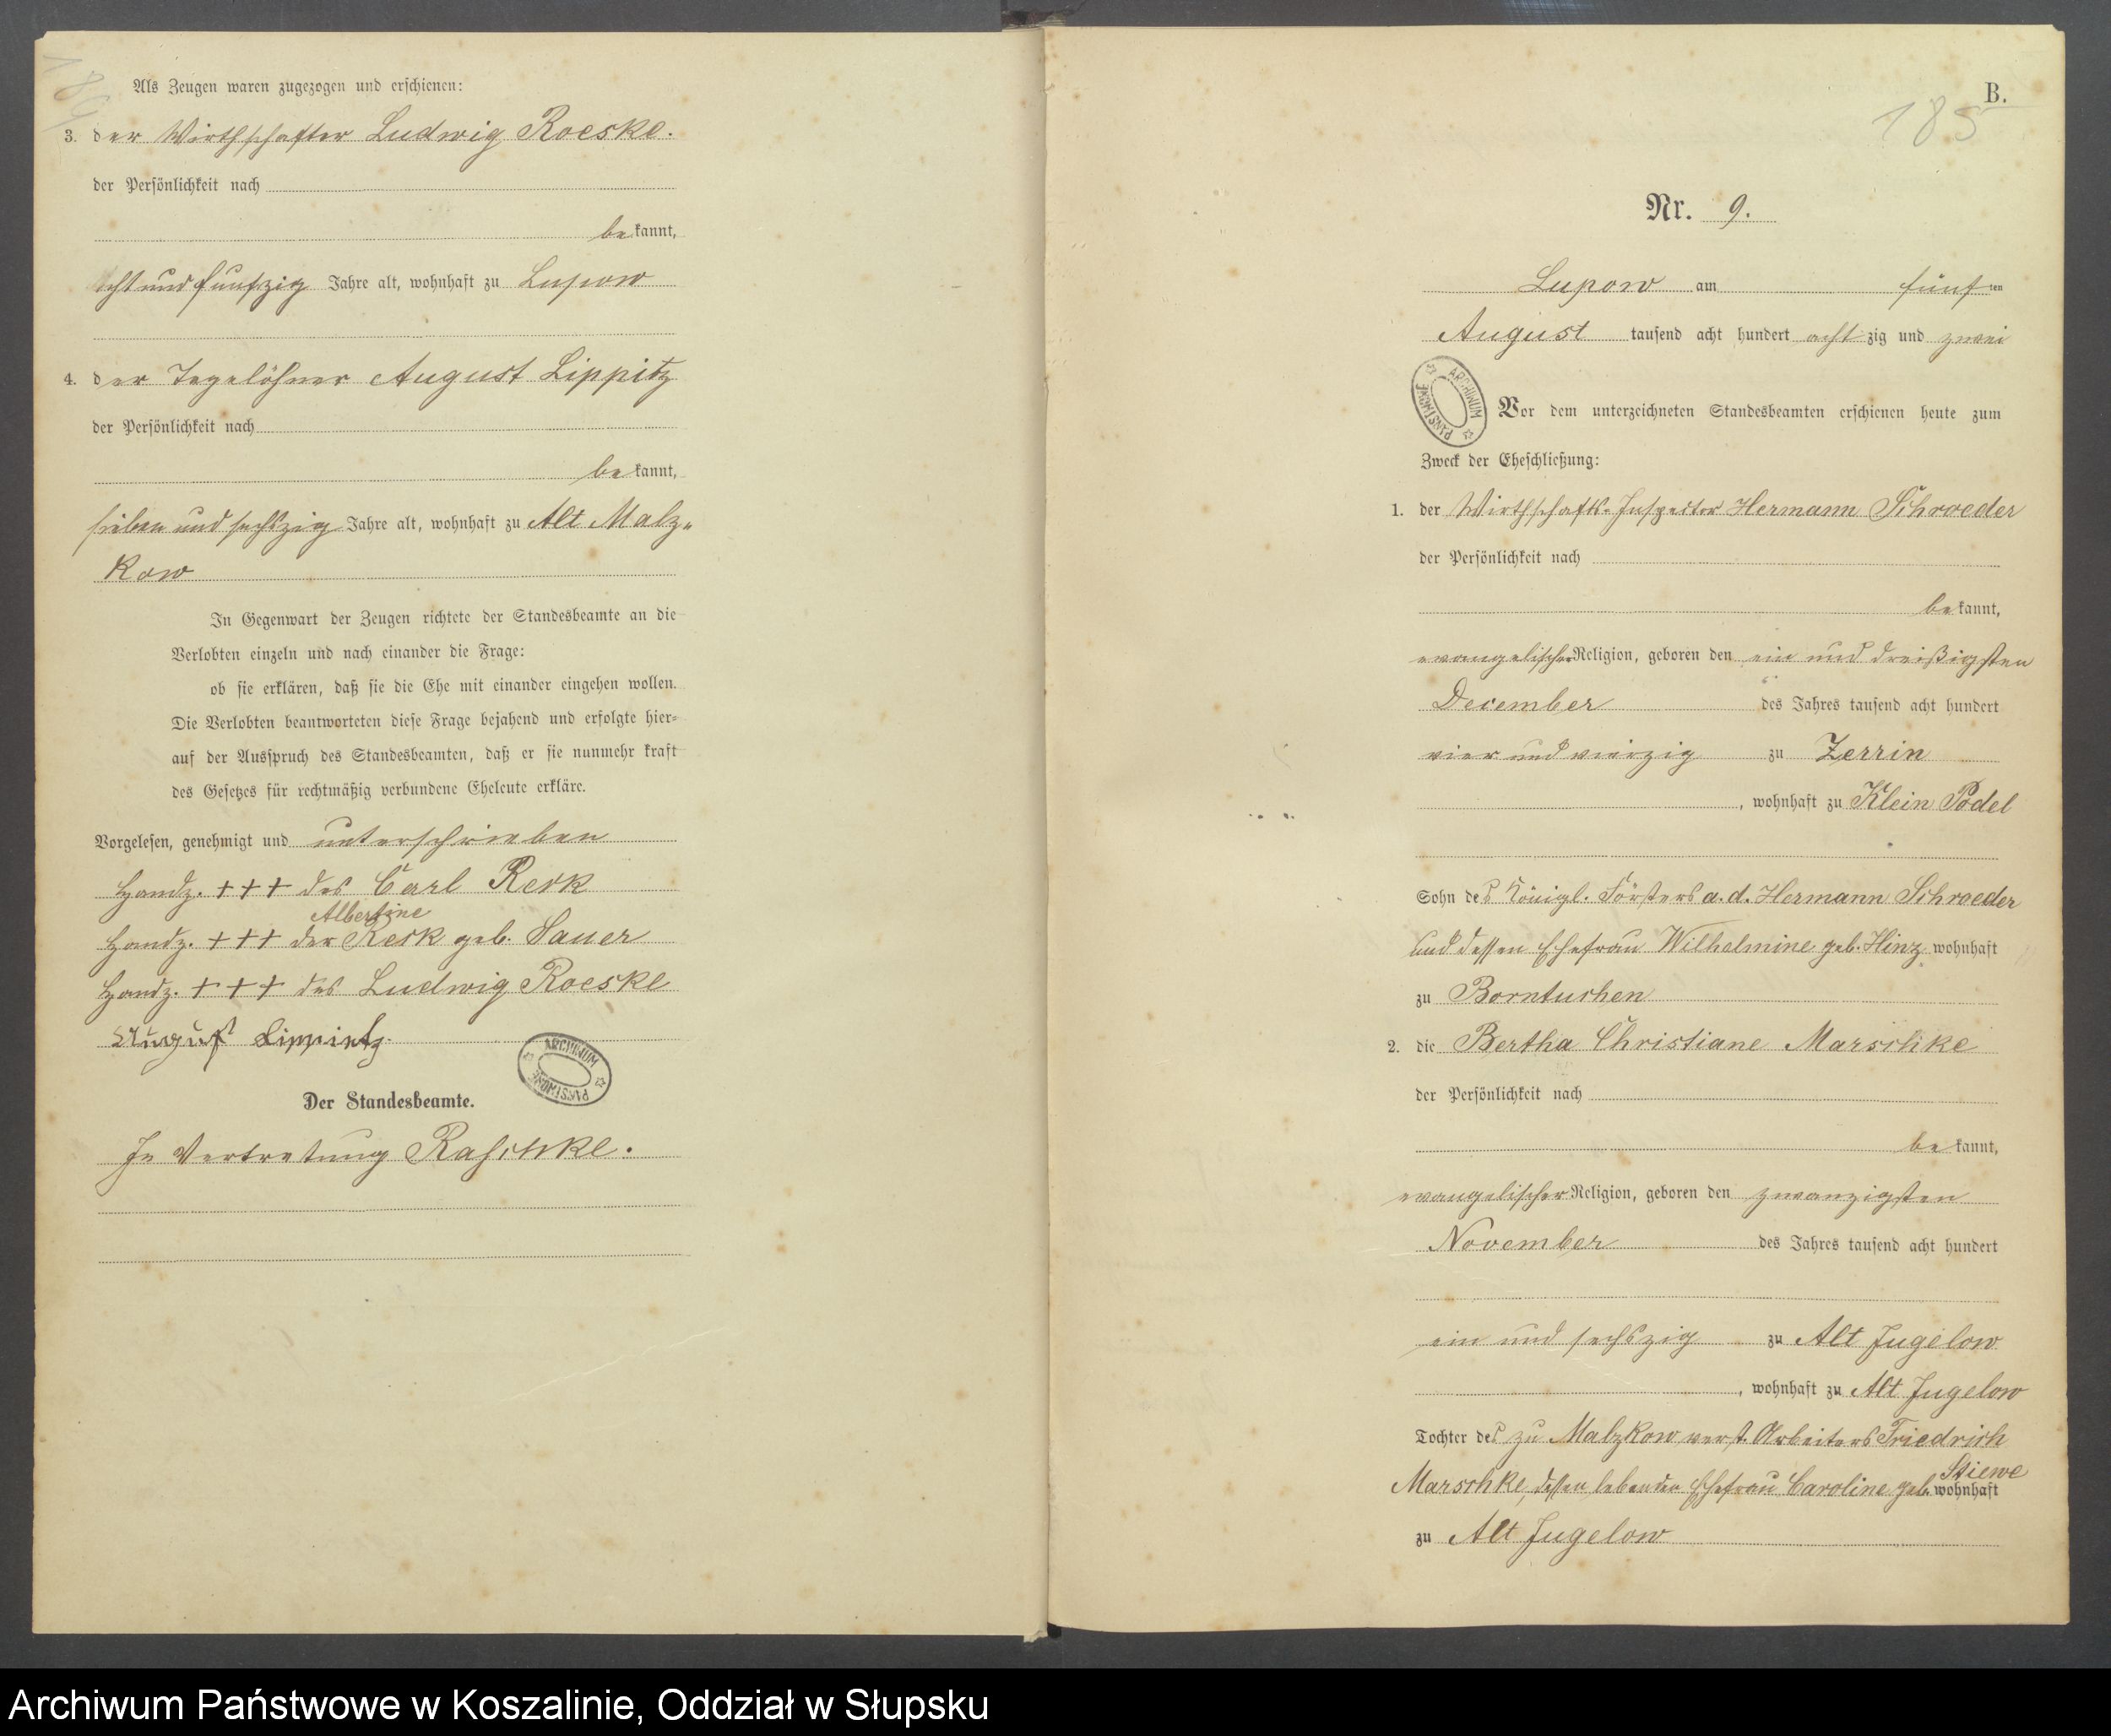 Als Zeugen waren zugezogen und erschienen:
3. der Wirthschafter Ludwig Roeske.
der Persönlichkeit nach
bekannt,
achtundfunfzig Jahre alt, wohnhaft zu Lupow
4. der Tagelöhner August Lippitz
der Persönlichkeit nach
bekannt,
sieben und sechszig Jahre alt, wohnhaft zu Alt Malz-
kow
In Gegenwart der Zeugen richtete der Standesbeamte an die
Verlobten einzeln und nach einander die Frage:
ob sie erklären, daß sie die Ehe mit einander eingehen wollen.
Die Verlobten beantworteten diese Frage bejahend und erfolgte hier-
auf der Ausspruch des Standesbeamten, daß er sie nunmehr kraft
des Gesetzes für rechtmäßig verbundene Eheleute erkläre.
Vorgelesen, genehmigt und unterschrieben
Handz. +++ des Carl Resk
Albertine
Handz. +++ der Resk geb. Sauer
Handz. +++ des Ludwig Roeske
August Lippitz.
ARCHIWUM PAŃSTWOWE
Der Standesbeamte.
In Vertretung Raschke.
B.
185
Nr. 9.
Lupow am fünften
August tausend acht hundert achtzig und zwei
ARCHIWUM PAŃSTWOWE
Vor dem unterzeichneten Standesbeamten erschienen heute zum
Zweck der Eheschließung:
1. der Wirthschafts-Inspector Hermann Schroeder
der Persönlichkeit nach
bekannt,
evangelischer Religion, geboren den ein und dreißigsten
December des Jahres tausend acht hundert
vier und vierzig zu Zerrin
, wohnhaft zu Klein Podel
Sohn des Königl. Försters a. d. Hermann Schroeder
und dessen Ehefrau Wilhelmine geb. Hinz wohnhaft
zu Borntuchen
2. die Bertha Christiane Marschke
der Persönlichkeit nach
bekannt,
evangelischer Religion, geboren den zwanzigsten
November des Jahres tausend acht hundert
ein und sechszig zu Alt Jugelow
, wohnhaft zu Alt Jugelow
Tochter des zu Malzkow verst. Arbeiters Friedrich
Stiewe
Marschke, dessen lebender Ehefrau Caroline geb. wohnhaft
zu Alt Jugelow
Archiwum Państwowe w Koszalinie, Oddział w Słupsku